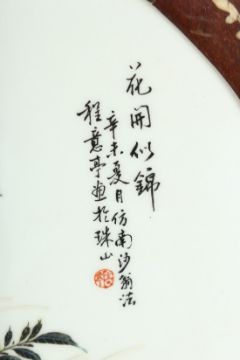 花開似錦
辛未夏月仿南沙翁法
程意亭畫於珠山